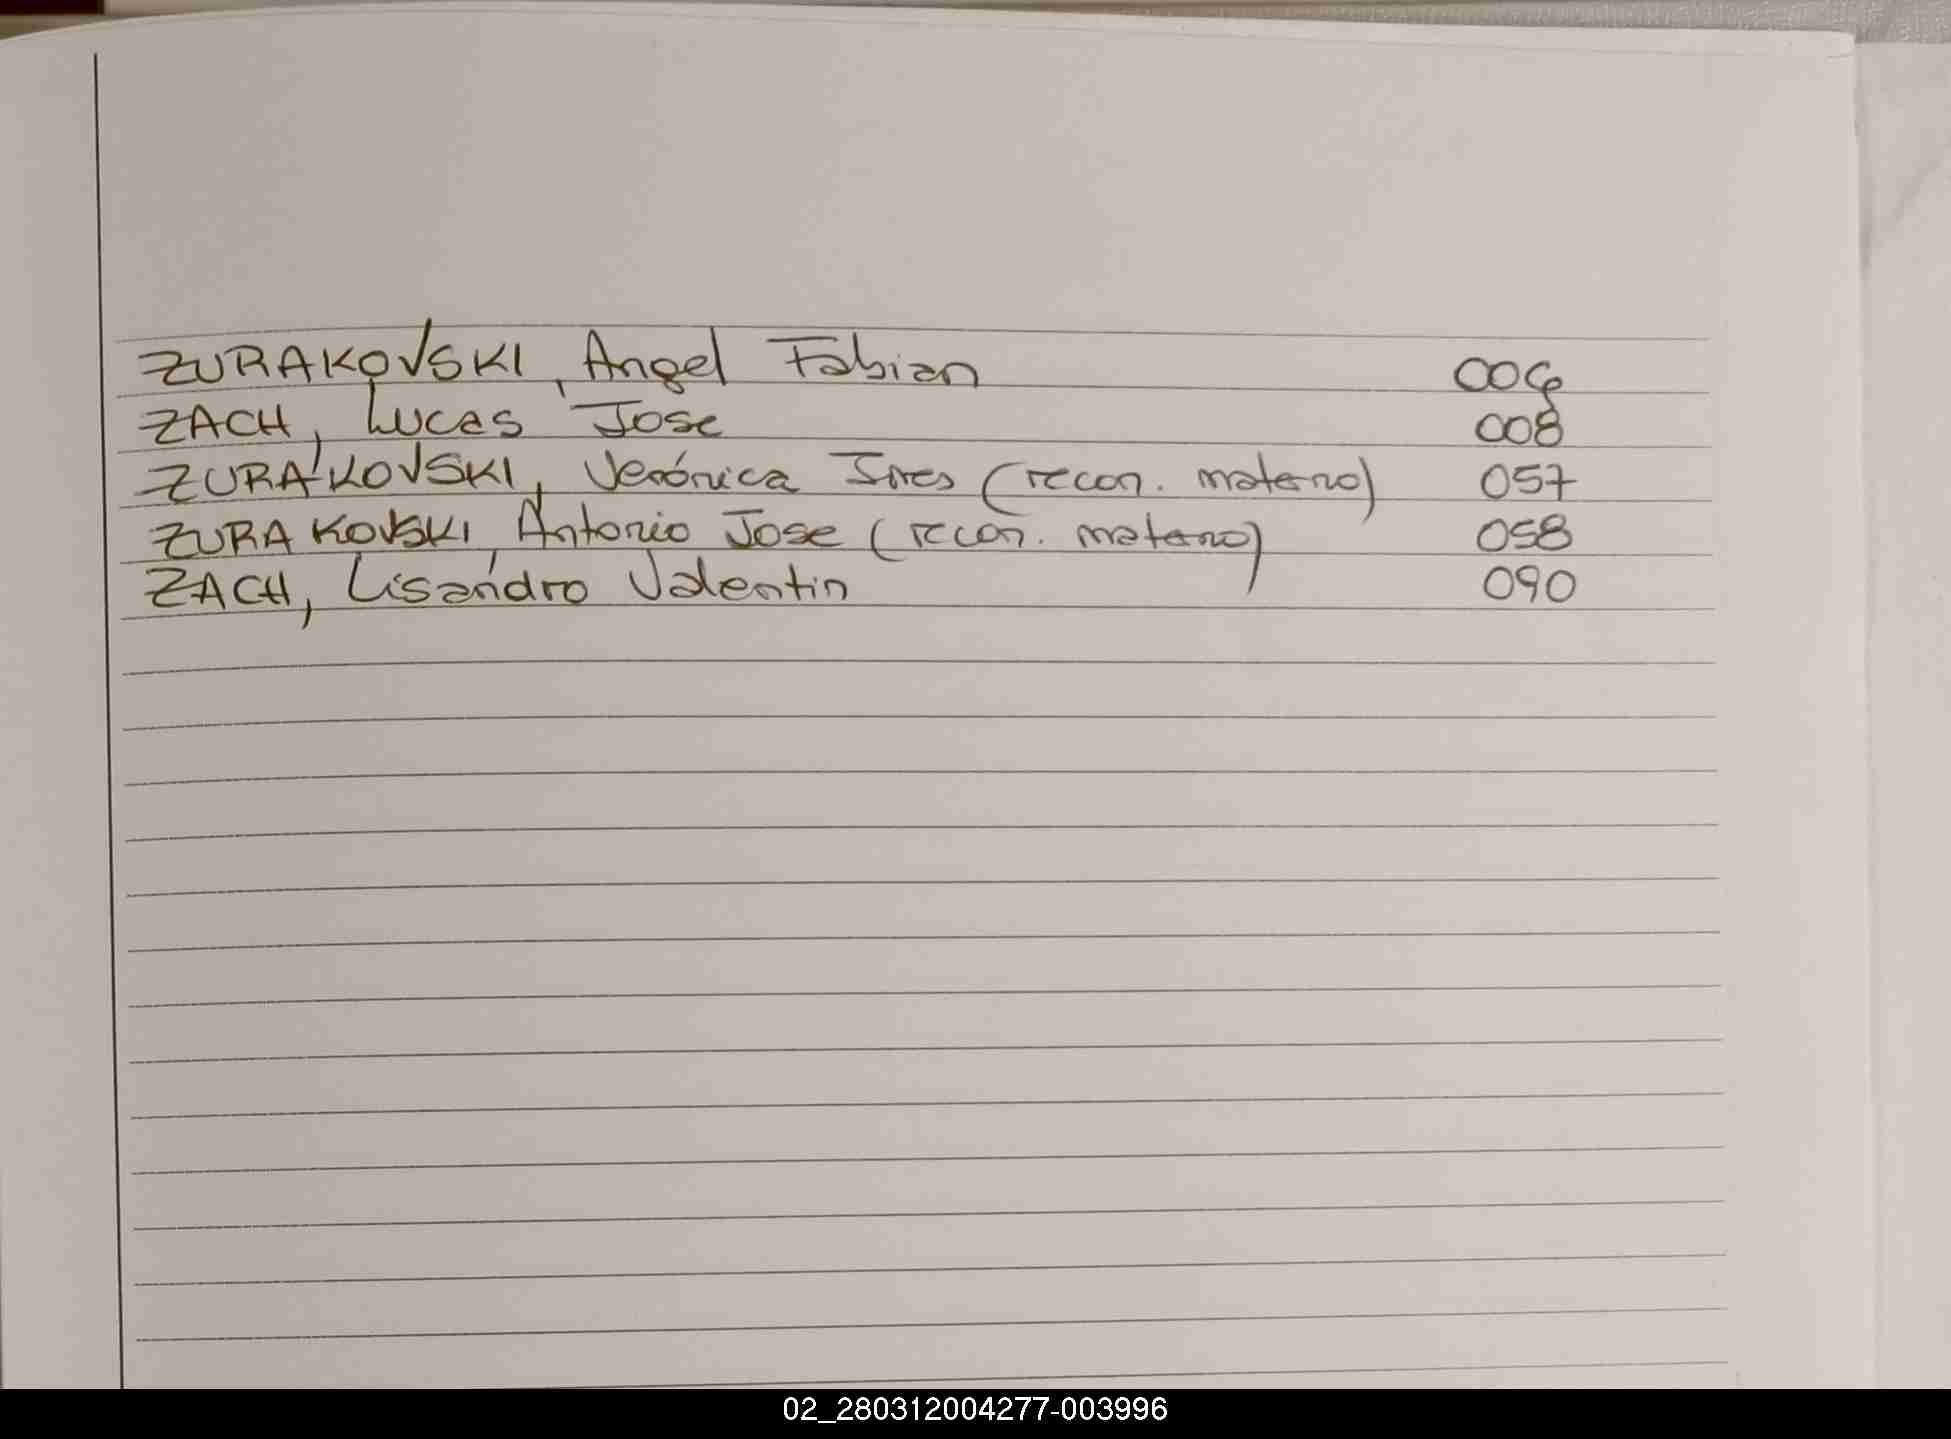 ZURAKOVSKI, Angel Fabian 006
ZACH, Lucas Jose 008
ZURAKOVSKI, Verónica Ines (recon. materno) 057
ZURAKOVSKI, Antonio Jose (recon. materno) 058
ZACH, Lisandro Valentin 090
02_280312004277-003996